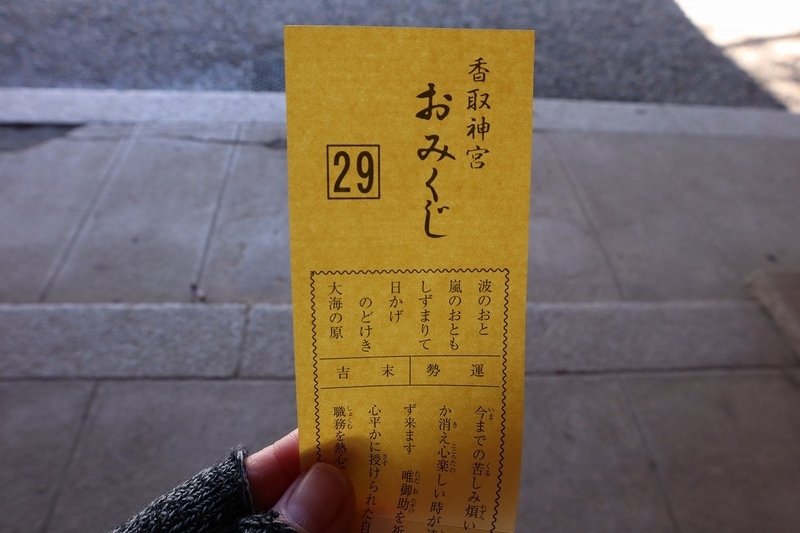 香取神宮
おみくじ
29
波のおと
嵐のおとも
しずまりて
日かげ
のどけき
大海の原
運勢
末吉
今までの苦しみ煩い
か消え心楽しい時が
ず来ます 唯御助を祈
心平かに授けられた自
職務を熱心